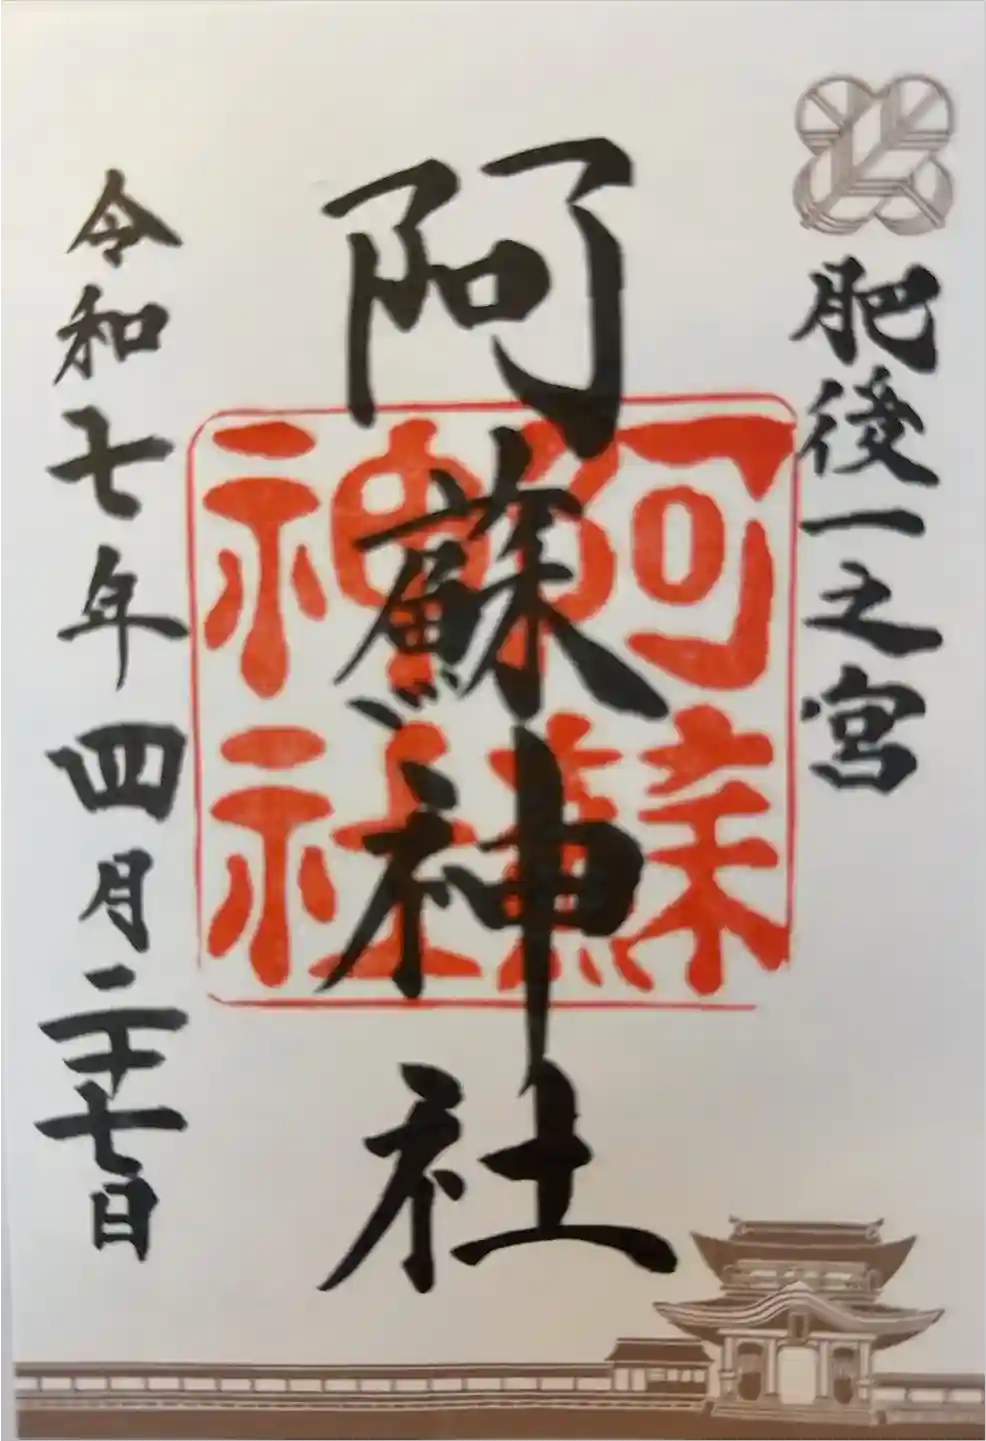 肥後一之宮
阿蘇神社
阿蘇神社
令和七年四月二十七日